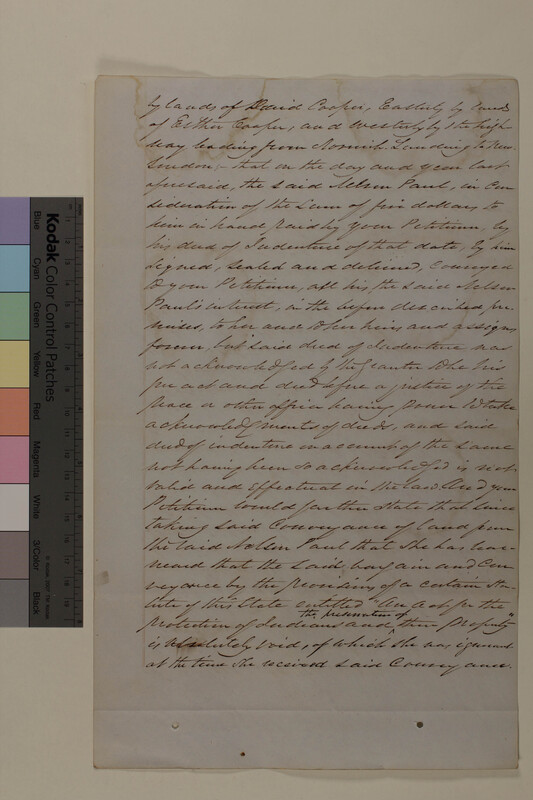 by lands of David Cooper, Easterly by lands
of Esther Cooper, and Westerly by the high
way leading from Norwich Landing to New
London, – that on the day and year last
aforesaid, the said Nelson Paul, in con
sideration of the Sum of five dollars, to
him in hand paid by your Petitioner, by
his deed of Indenture of that date, by him
signed, sealed and delivered, Conveyed
to your Petitioner, all his, the said Nelson
Paul's interest, in the before described pre
mises, to her and to her heirs and assigns
forever, but said deed of Indenture was
not acknowledged by the Grantor to be his
free act and deed before a justice of the
peace or other officer having power to take
acknowledgments of deeds, and said
deed of indenture on account of the same
not having been so acknowledged is not
valid and effectual in the law. And your
Petitioner would further State that since
taking said Conveyance of land from
the said Nelson Paul that she has lear-
ned that the said bargain and Con
veyance by the provisions of a certain Sta
tute of this State entitled "An Act for the
protection of Indians and the preservation of their property"
is absolutely void, of which she was ignorant
at the time she received said Conveyance.
Kodak Color Control Patches
Blue Cyan Green Yellow Red Magenta White 3/Color Black